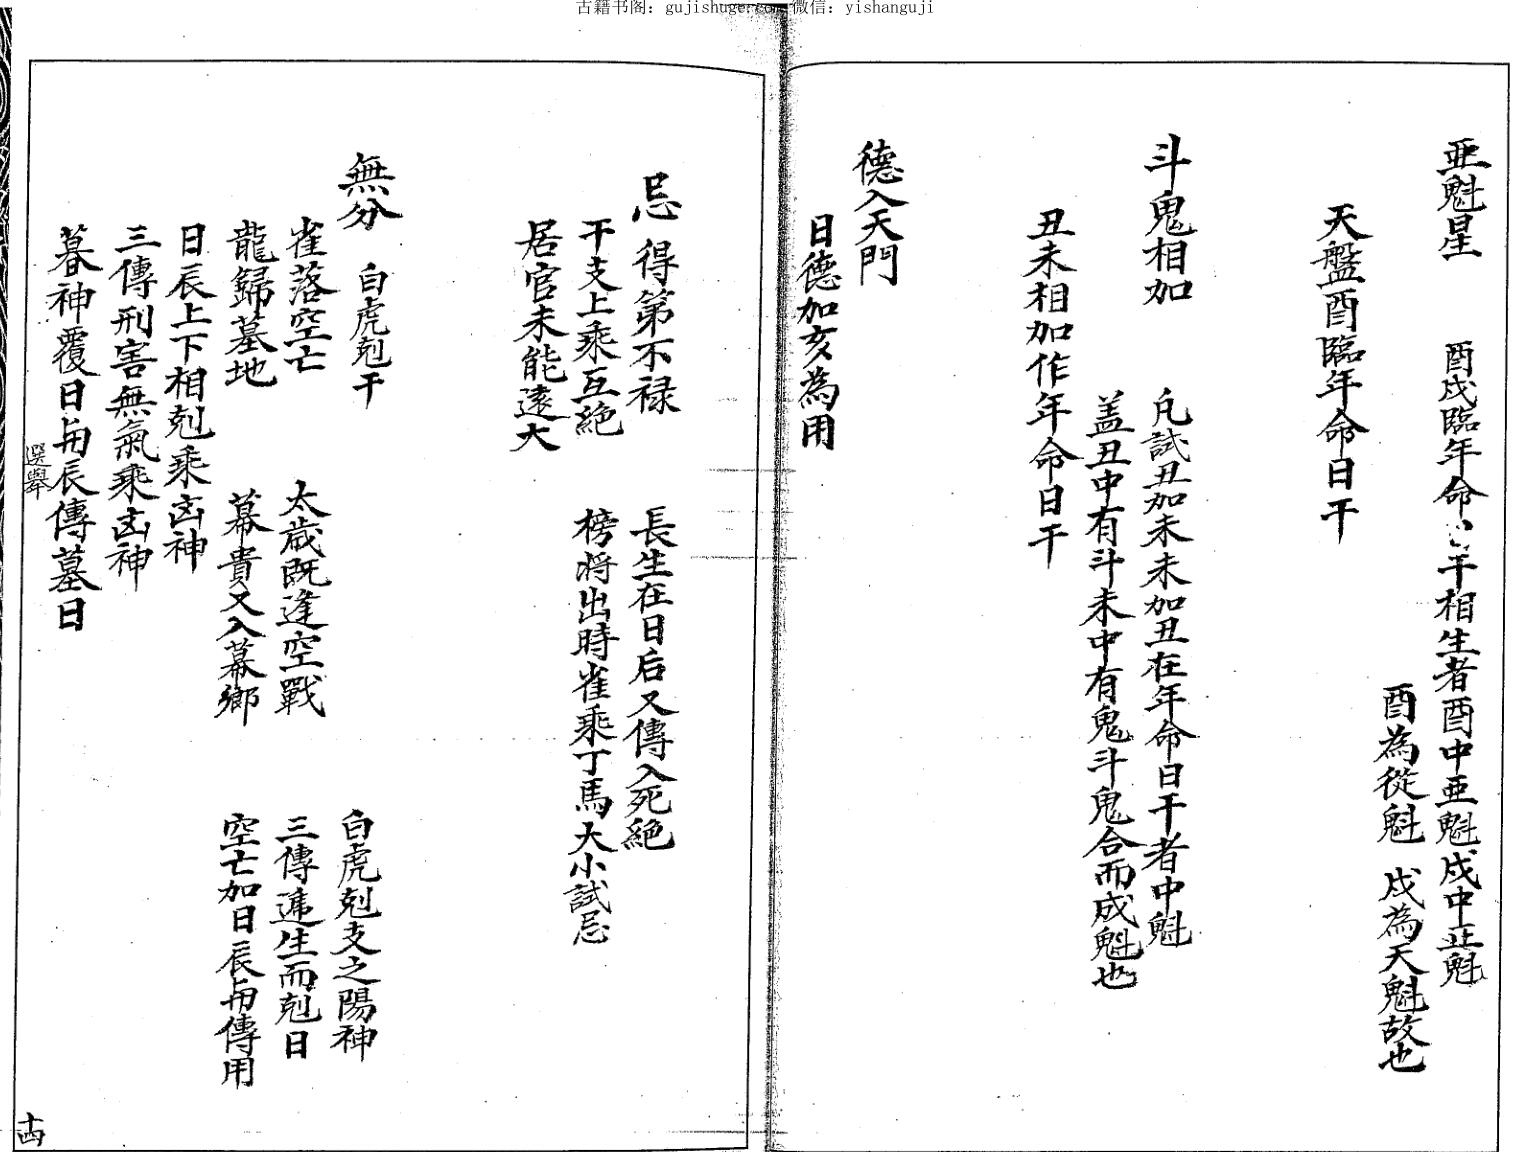 古籍书阁：gujishuge.com 微信：yishanguji
亜魁星　酉戌臨年命日干相生者酉中亜魁戌中正魁
酉為從魁　戌為天魁故也
天盤酉臨年命日干
斗鬼相加　凡試丑加未未加丑在年命日干者中魁
盖丑中有斗未中有鬼斗鬼合而成魁也
丑未相加作年命日干
德入天門
日德加亥為用
忌　得第不禄　長生在日后又傳入死絶
干支上乘互絶　榜将出時雀乘丁馬大小試忌
居官未能遠大
無分　白虎剋干　白虎剋支之陽神
雀落空亡　太歳既逢空戰　三傳遞生而剋日
龍歸墓地　幕貴又入幕鄉　空亡加日辰與傳用
日辰上下相剋乘凶神
三傳刑害無氣乘凶神
暮神覆日與辰傳墓日
選舉
十四